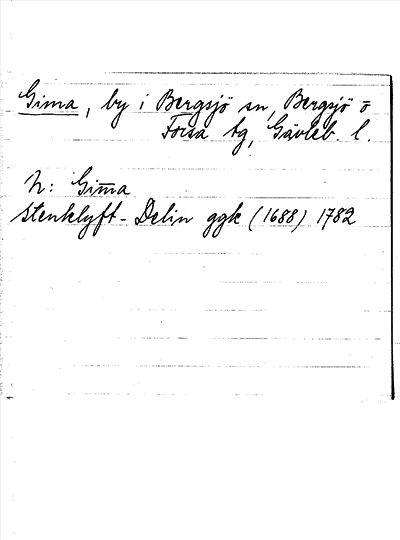 Gima, by i Bergsjö sn, Bergsjö o
Forsa tg, Gävleb. l.
h: Gim̅a
Stenklyft- Delin ggk (1688) 1782